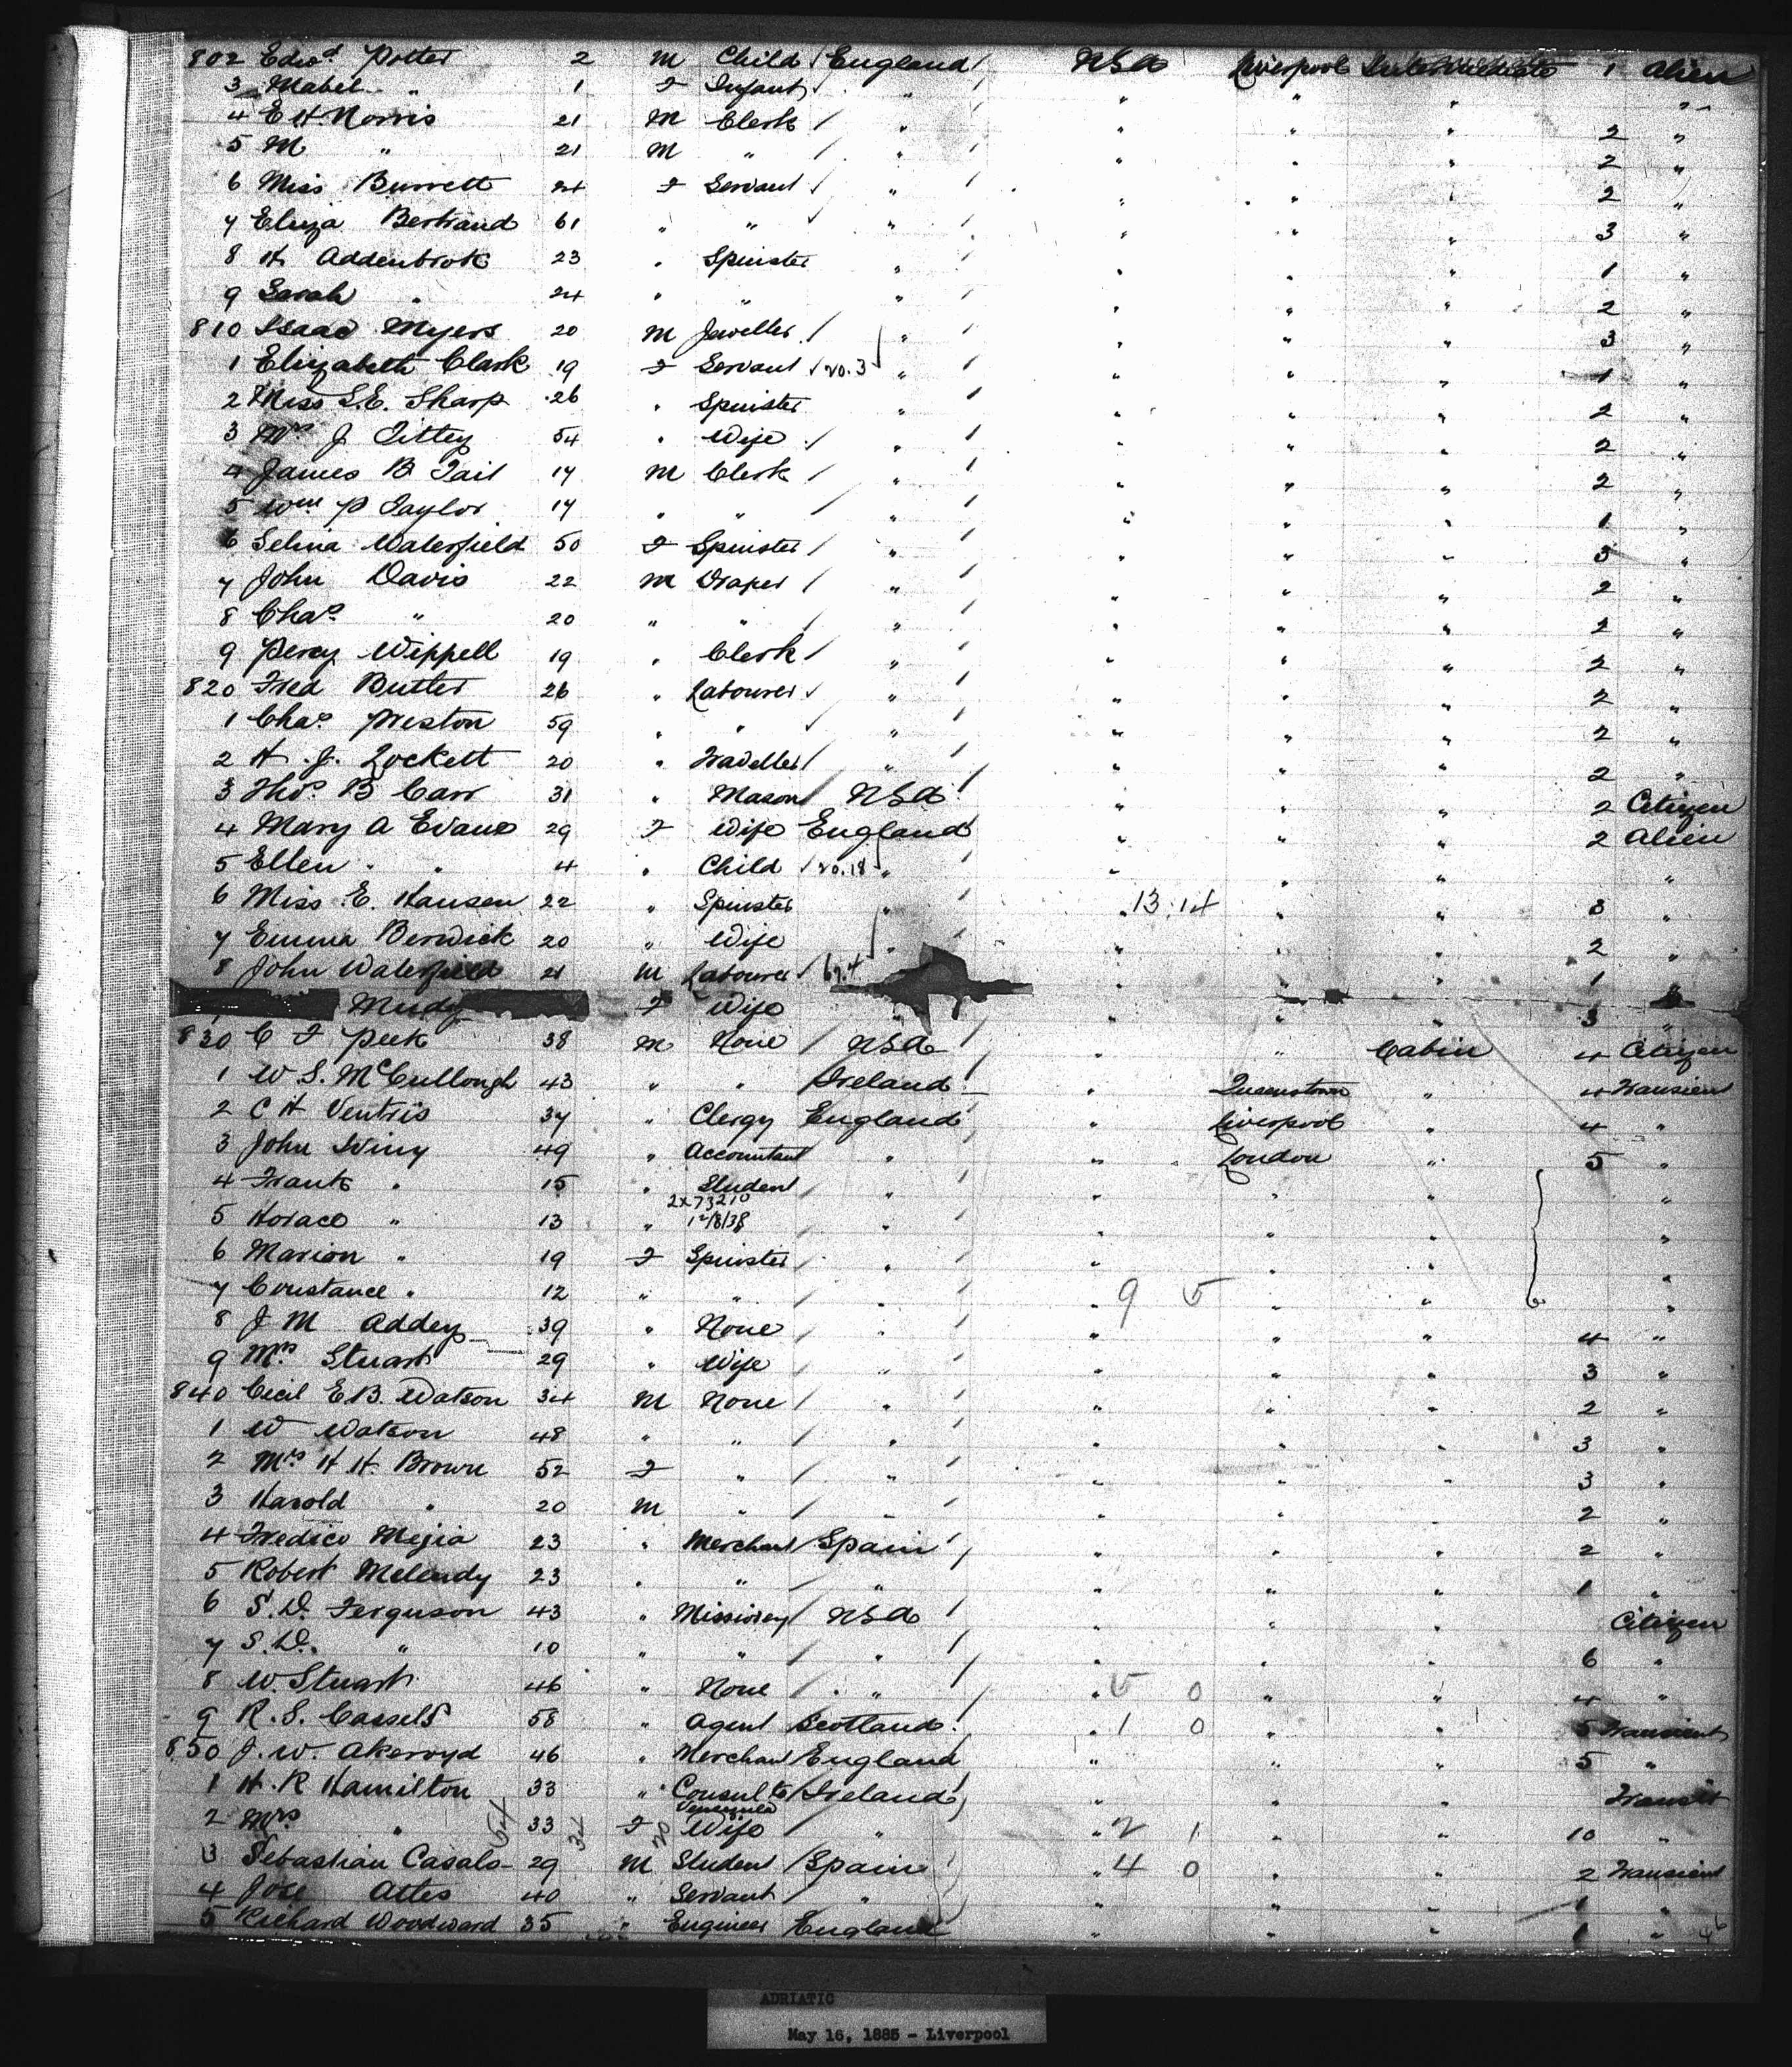 802 Edwd Potter 2 M Child England USA Liverpool Intermediate 1 Alien
3 Mabel " 1 F Infant " " " " "
4 E H Norris 21 M Clerk " " " " 2 "
5 M " 21 M " " " " " 2 "
6 Miss Burrett 24 F Servant " " " " 2 "
7 Eliza Bertrand 61 " " " " " " 3 "
8 H Addenbrook 23 " Spinster " " " " 1 "
9 Sarah " 24 " " " " " " 2 "
810 Isaac Myers 20 M Jeweller " " " " 3 "
1 Elizabeth Clark 19 F Servant no. 3 " " " " 1 "
2 Miss S.E. Sharp 26 " Spinster " " " " 2 "
3 Mrs J Titley 54 " Wife " " " " 2 "
4 James B Tait 17 M Clerk " " " " 2 "
5 Wm P Taylor 17 " " " " " " 1 "
6 Selina Waterfield 50 F Spinster " " " " 3 "
7 John Davis 22 M Draper " " " " 2 "
8 Chas " 20 " " " " " " 2 "
9 Percy Wippell 19 " Clerk " " " " 2 "
820 Fred Butler 26 " Labourer " " " " 2 "
1 Chas Weston 59 " " " " " " 2 "
2 H. J. Lockett 20 " Traveller " " " " 2 "
3 Thos. B Carr 31 " Mason USA " " " 2 Citizen
4 Mary A Evans 29 F Wife England " " " 2 Alien
5 Ellen " 4 " Child no. 18 " " " " "
6 Miss E. Hansen 22 " Spinster " " 13.14 " " 3 "
7 Emma Berwick 20 " Wife " " " " 2 "
8 John Waterfield 21 M Labourer " " " 1 "
Mudy F Wife " " " 3 "
830 C F Peek 38 M None USA " " Cabin 4 Citizen
1 W S. McCullough 43 " " Ireland " Queenstown " 4 Transient
2 C H Ventris 37 " Clergy England " Liverpool " 4 "
3 John Winy 49 " Accountant " " London " 5 "
4 Frank " 15 " Student " " " " "
2x73210
5 Horace " 13 " 12/8/38 " " " " "
6 Marion " 19 F Spinster " " " " "
7 Constance " 12 " " " " 9 5 " " "
8 J M Addey 39 " None " " " " 4 "
9 Mrs Stuart 29 " Wife " " " " 3 "
840 Cecil E B. Watson 34 M None " " " " 2 "
1 W Watson 48 " " " " " " 3 "
2 Mrs H. H. Brown 52 F " " " " " 3 "
3 Harold " 20 M " " " " " 2 "
4 Fredico Mejia 23 " Merchant Spain " " " 2 "
5 Robert Melendy 23 " " " " " " 1 "
6 S. D. Ferguson 43 " Missiorey USA " " " Citizen
7 S. D. " 10 " " " " " " 6 "
8 W. Stuart 46 " None " " 5 0 " " 4 "
9 R. S. Cassels 58 " Agent Scotland " 1 0 " " 5 Transient
850 J. W. Akeroyd 46 " Merchant England " " " 5 "
1 H. R Hamilton 33 " Consul to Ireland " " " Transit
Venezuela
2 Mrs " 64 33 34 F 20 Wife " " 2 1 " " 10 "
3 Sebastian Casals 29 M Student Spain " 4 0 " " 2 Transient
4 Jose Attes 40 " Servant " " " " 1 "
5 Richard Woodward 35 " Engineer England " " " 1 "
ADRIATIC
May 16, 1885 - Liverpool